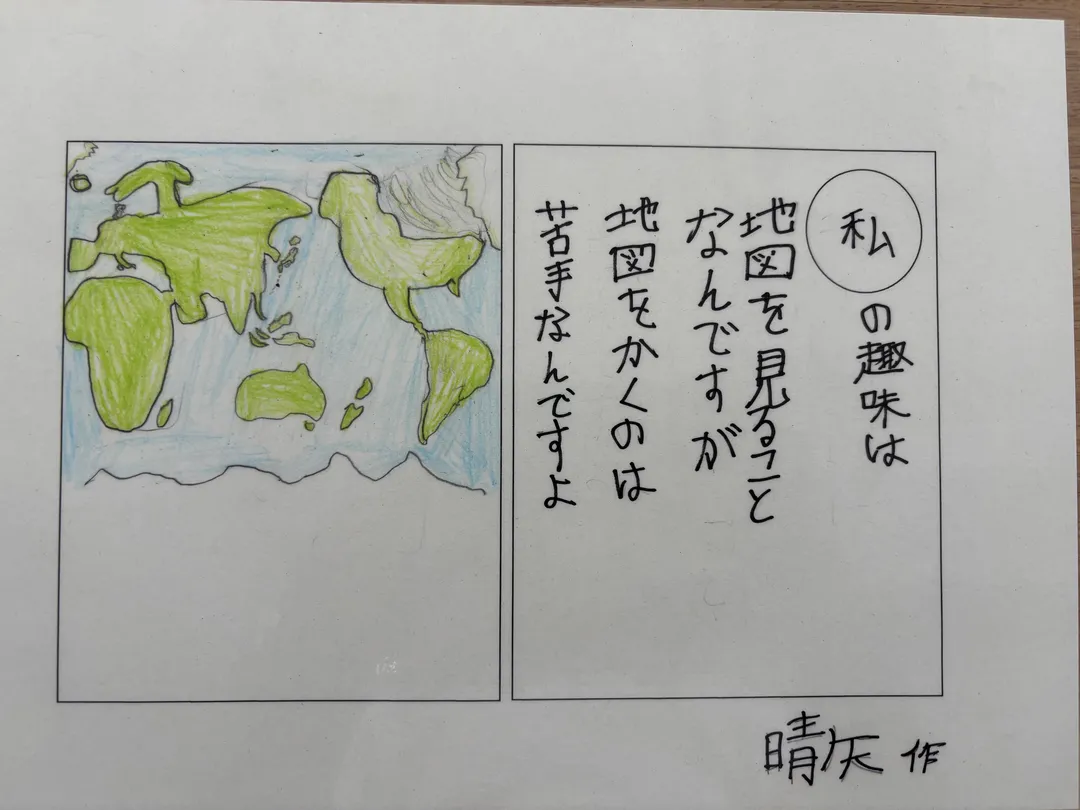 私の趣味は
地図を見ること
なんですが
地図をかくのは
苦手なんですよ
晴矢 作